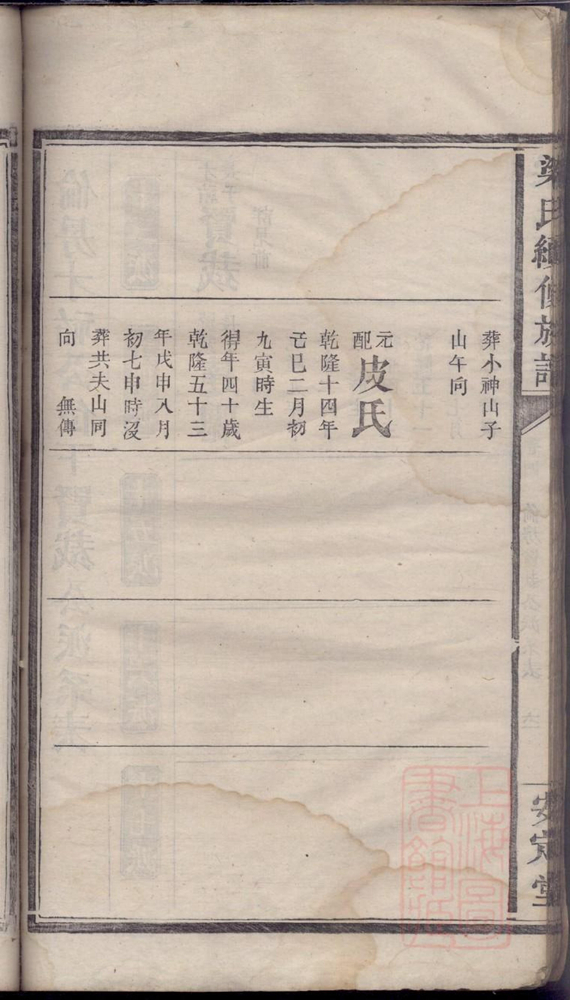 梁氏續修族譜
安定堂
葬小神山子
山午向
元配皮氏
乾隆十四年
己巳二月初
九寅時生
得年四十歲
乾隆五十三
年戊申八月
初七申時沒
葬共夫山同
向 無傳
上海圖
書館藏